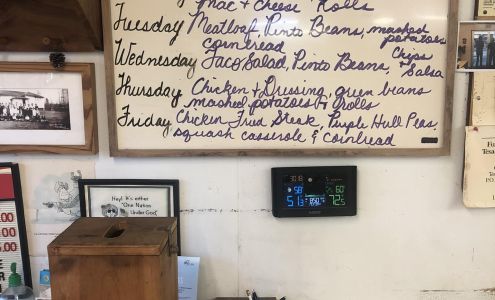 Mac + Cheese Rolls
Tuesday Meatloaf, Pinto Beans, mashed
potatoes
cornbread
Wednesday Taco Salad, Pinto Beans, Chips
+ Salsa
Thursday Chicken + Dressing, green beans
mashed potatoes + rolls
Friday Chicken Fried Steak, Purple Hull Peas,
squash casserole & Cornbread
58°
60
51
72
Hey! It's either
"One Nation
Under God,"